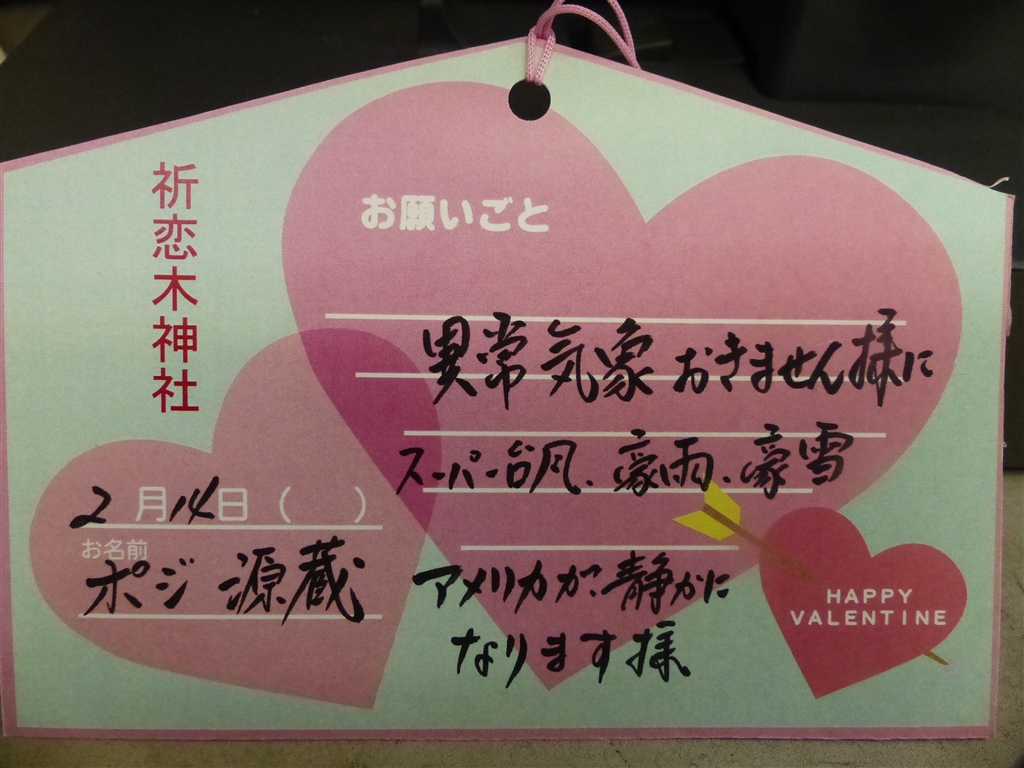 祈恋木神社
お願いごと
異常気象おきません様に
スーパー台風、豪雨、豪雪
アメリカが静かに
なります様
2月14日（　）
お名前
ポジ 源蔵
HAPPY
VALENTINE